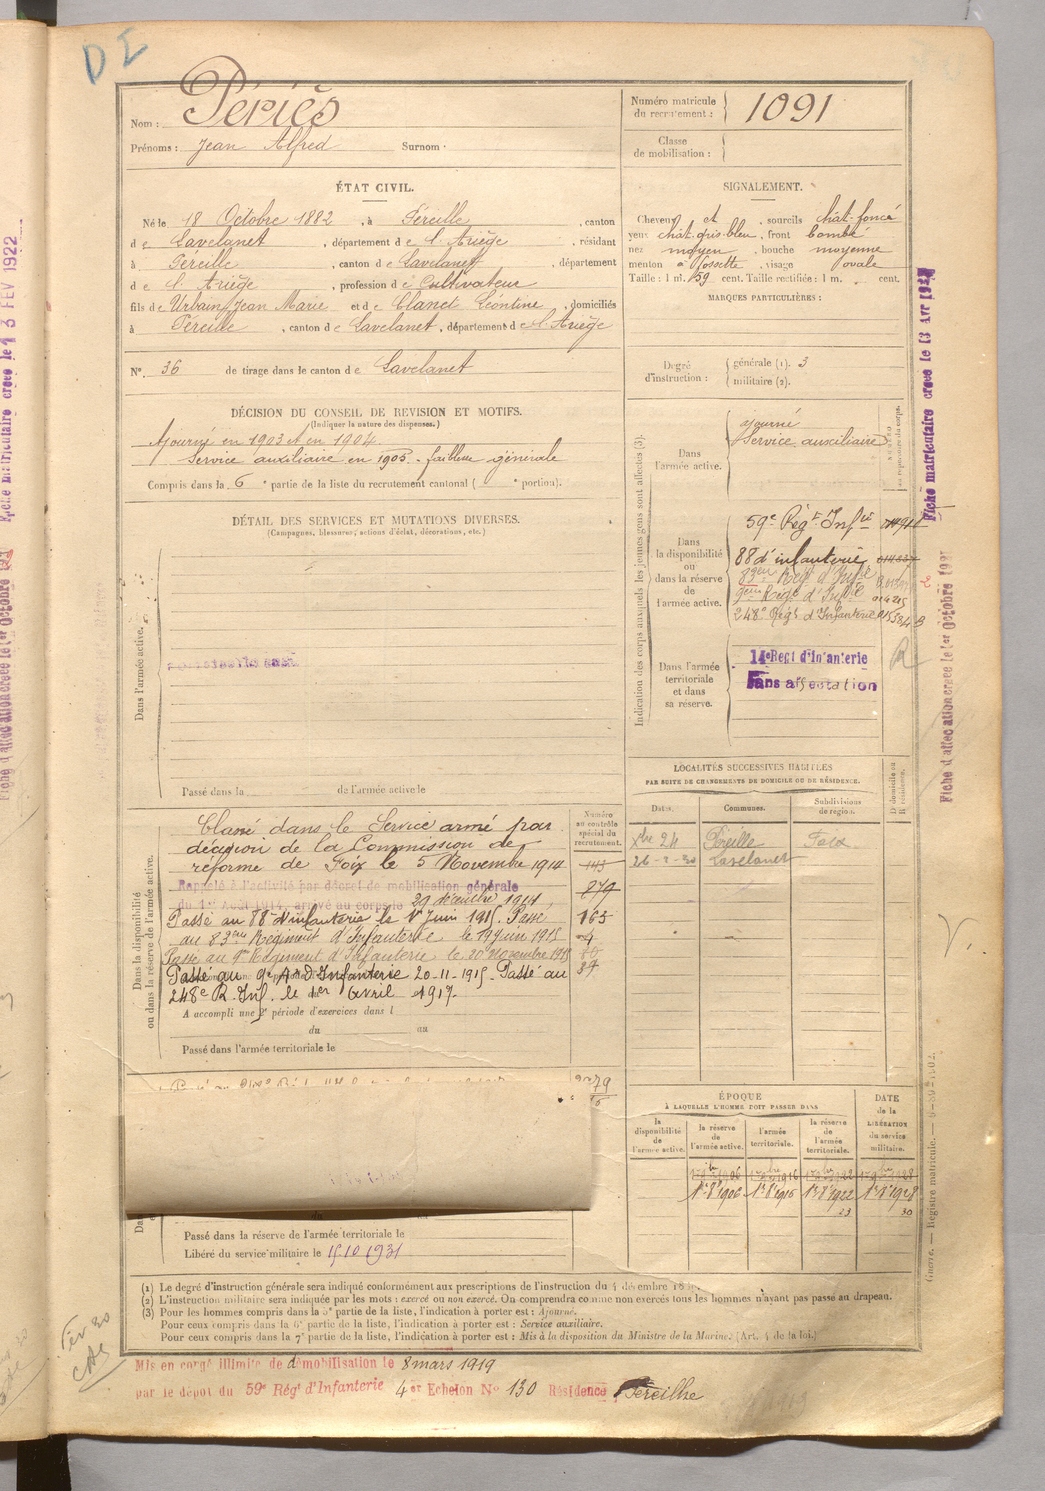 DI
Nom : Périés
Prénoms : Jean Alfred Surnom :
Numéro matricule du recrutement : 1091
Classe de mobilisation :
ÉTAT CIVIL.
Né le 18 Octobre 1882, à Péreille, canton
de Lavelanet, département de l'Ariège, résidant
à Péreille, canton de Lavelanet, département
de l'Ariège, profession de Cultivateur
fils de Urbain, Jean Marie et de Clanet Léontine, domiciliés
à Péreille, canton de Lavelanet, département de l'Ariège
N° 36 de tirage dans le canton de Lavelanet
SIGNALEMENT.
Cheveux et, sourcils chât-foncé
yeux chât.gris-bleu, front bombé
nez moyen, bouche moyenne
menton à fossette, visage ovale
Taille : 1 m. 59 cent. Taille rectifiée : 1 m. cent.
MARQUES PARTICULIÈRES :
Degré d'instruction : générale (1). 3
militaire (2).
DÉCISION DU CONSEIL DE REVISION ET MOTIFS.
(Indiquer la nature des dispenses.)
Ajourné en 1903 et en 1904.
Service auxiliaire en 1905 - faiblesse générale
Compris dans la 6e partie de la liste du recrutement cantonal ( e portion).
DÉTAIL DES SERVICES ET MUTATIONS DIVERSES.
(Campagnes, blessures, actions d'éclat, décorations, etc.)
Dans l'armée active.
Passé dans la de l'armée active le
Indication des corps auxquels les jeunes gens sont affectés (3).
Dans l'armée active.
ajourné
Service auxiliaire
Dans la disponibilité ou dans la réserve de l'armée active.
59e Régt Infie
88 d'infanterie
83em Regt d'Infie
9em Regt d'Infie
248e Régt d'Infanterie
Dans l'armée territoriale et dans sa réserve.
14e Regt d'Infanterie
Sans affectation
LOCALITÉS SUCCESSIVES HABITÉES
PAR SUITE DE CHANGEMENTS DE DOMICILE OU DE RÉSIDENCE.
Dates. Communes. Subdivisions de région. D domicile ou R résidence.
Xbre 24 Péreille Foix
26-2-30 Lavelanet
Dans la disponibilité ou dans la réserve de l'armée active.
Numéro au contrôle spécial du recrutement.
Classé dans le Service armé par
décision de la Commission de
réforme de Foix le 5 Novembre 1914
Rappelé à l'activité par décret de mobilisation générale
du 1er Août 1914, arrivé au corps le 29 décembre 1914,
Passé au 88e d'infanterie le 1er Juin 1915. Passé
au 83em Régiment d'Infanterie le 19 Juin 1915
Passé au 9e Régiment d'Infanterie le 20 Novembre 1915
Passé au 9e Rt d'Infanterie 20-11-1915. Passé au
248e R. Inf. le 1er Avril 1917.
A accompli une 2e période d'exercices dans l
du au
Passé dans l'armée territoriale le
ÉPOQUE
À LAQUELLE L'HOMME DOIT PASSER DANS
DATE de la LIBÉRATION du service militaire.
la disponibilité de l'armée active. la réserve de l'armée active. l'armée territoriale. la réserve de l'armée territoriale.
1r 8e 1906 1r 8e 1916 1r 8e 1922 1r 8e 1928
23 30
Passé dans la réserve de l'armée territoriale le
Libéré du service militaire le 15.10.1931
(1) Le degré d'instruction générale sera indiqué conformément aux prescriptions de l'instruction du 4 décembre
(2) L'instruction militaire sera indiquée par les mots : exercé ou non exercé. On comprendra comme non exercés tous les hommes n'ayant pas passé au drapeau.
(3) Pour les hommes compris dans la 5e partie de la liste, l'indication à porter est : Ajourné.
Pour ceux compris dans la 6e partie de la liste, l'indication à porter est : Service auxiliaire.
Pour ceux compris dans la 7e partie de la liste, l'indication à porter est : Mis à la disposition du Ministre de la Marine. (Art. 4 de la loi.)
Mis en congé illimité de démobilisation le 8 mars 1919
par le dépôt du 59e Régt d'Infanterie 4e Echelon No 130 Résidence Péreilhe
Fiche matriculaire créée le 13 Avr
Fiche d'affectation créée le 1er Octobre
Guerre. — Registre matricule.
Fiche matriculaire créée le 13 FEV 1922